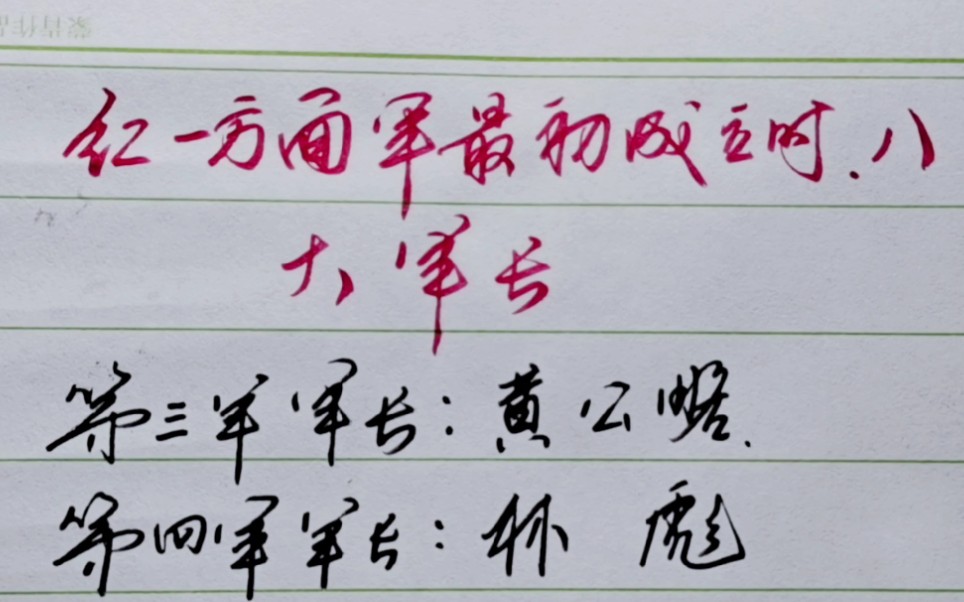 红一方面军最初成立时.八
大军长
第三军军长：黄公略.
第四军军长：林彪